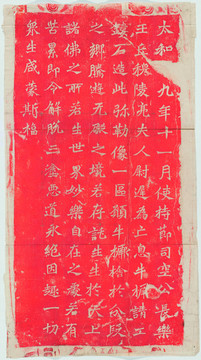 太和□九年十一月使持節司空公長樂
王丘穆陵亮夫人尉遲為亡息牛橛請工
鏤石造此弥勒像一區願牛橛捨於分段
之鄉騰遊无礙之境若存託生生於天上
諸佛之所若生世界妙樂自在之處若有
苦累即令解脱三塗惡道永絕因趣一切
衆生咸蒙斯福